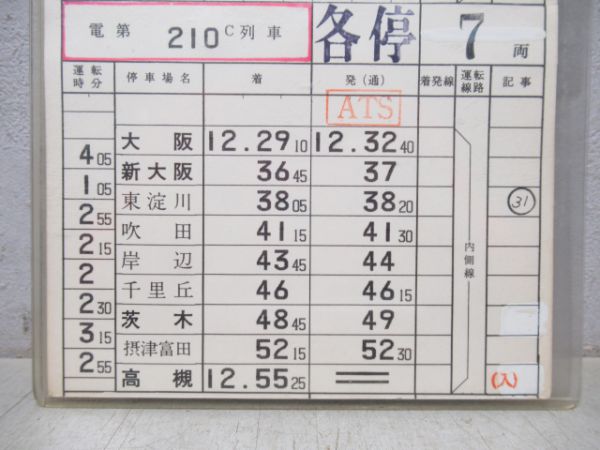 電第 210C列車 各停 7両
運転時分 停車場名 着 発(通) 着発線 運転線路 記事
ATS
大阪 12.29 10 12.32 40
4 05
新大阪 36 45 37
1 05
東淀川 38 05 38 20 31
2 55
吹田 41 15 41 30
2 15
岸辺 43 45 44
2
千里丘 46 46 15
2 30
茨木 48 45 49
3 15
摂津富田 52 15 52 30
2 55
高槻 12.55 25 (入)
内側線